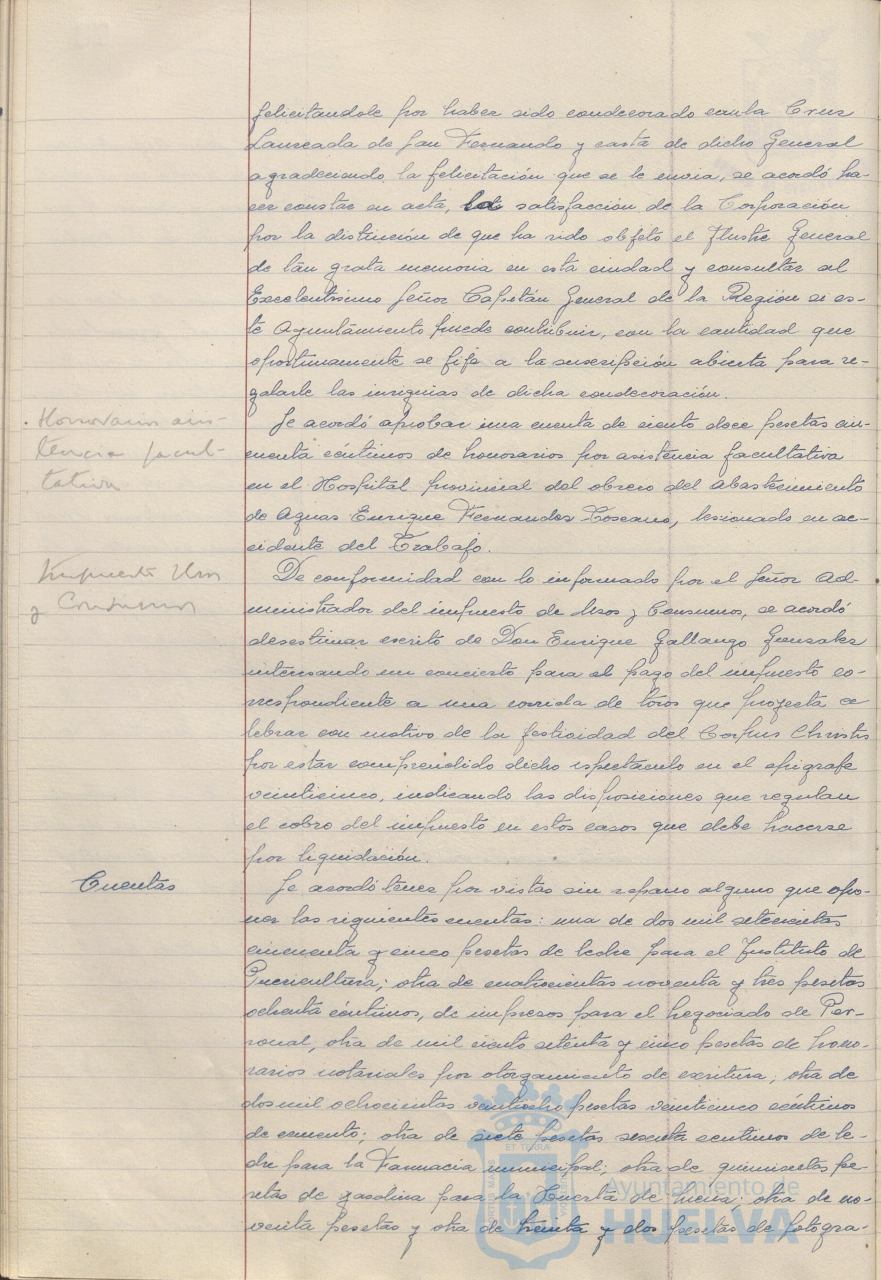 felicitandole por haber sido condecorado con la Cruz
Laureada de San Fernando y carta de dicho General
agradeciendo la felicitación que se le envia, se acordó ha-
cer constar en acta, la satisfacción de la Corporación
por la distinción de que ha sido objeto el Ilustre General
de tan grata memoria en esta ciudad y consultar al
Excelentisimo Señor Capitán General de la Región si es-
te Ayuntamiento puede contribuir, con la cantidad que
oportunamente se fije a la suscripción abierta para re-
galarle las insignias de dicha condecoración.
Honorarios asis-
tencia facul-
tativa
Se acordó aprobar una cuenta de ciento doce pesetas cin-
cuenta céntimos de honorarios por asistencia facultativa
en el Hospital provincial del obrero del Abastecimiento
de Aguas Enrique Fernandez Toscano, lesionado en ac-
cidente del Trabajo.
Impuesto Usos
y Consumos
De conformidad con lo informado por el Señor Ad-
ministrador del impuesto de Usos y Consumos, se acordó
desestimar escrito de Don Enrique Gallango Gonzalez
interesando un concierto para el pago del impuesto co-
rrespondiente a una corrida de toros que proyecta ce
lebrar con motivo de la festividad del Corpus Christi
por estar comprendido dicho espectaculo en el epigrafe
veinticinco, indicando las disposiciones que regulan
el cobro del impuesto en estos casos que debe hacerse
por liquidación.
Cuentas
Se acordó tener por vistas sin reparo alguno que opo-
ner las siguientes cuentas: una de dos mil setecientas
cincuenta y cinco pesetas de leche para el Instituto de
Puericultura; otra de cuatrocientas noventa y tres pesetas
ochenta céntimos, de impresos para el Negociado de Per-
sonal, otra de mil ciento setenta y cinco pesetas de hono-
rarios notariales por otorgamiento de escritura; otra de
dos mil ochocientas veintiocho pesetas veinticinco céntimos
de cemento; otra de siete pesetas sesenta centimos de le-
che para la Farmacia municipal; otra de quinientas pe-
setas de gasolina para la Huerta de Mena; otra de no-
venta pesetas y otra de treinta y dos pesetas de fotogra-
Ayuntamiento de
HUELVA